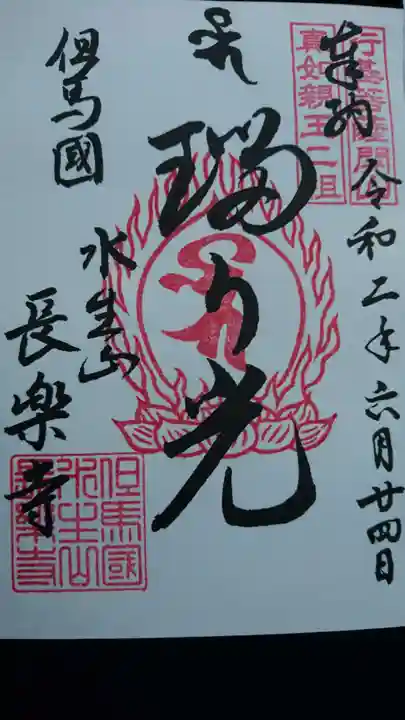 奉納
令和二年六月廿四日
行基菩薩開山
真如親王二祖
瑠り光
但馬國
水生山
長楽寺
但馬國
水生山
長楽寺